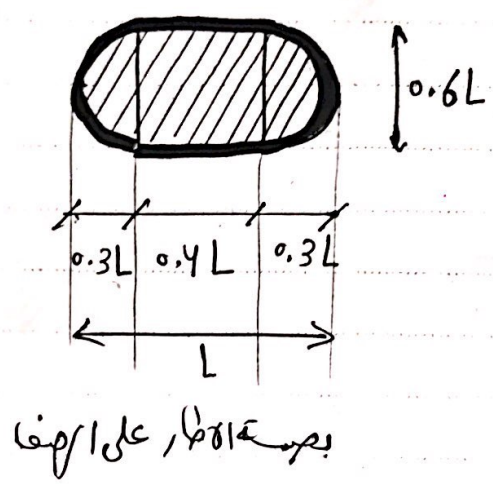 0.6L
0.3L 0.4L 0.3L
L
بصمة الاطار على